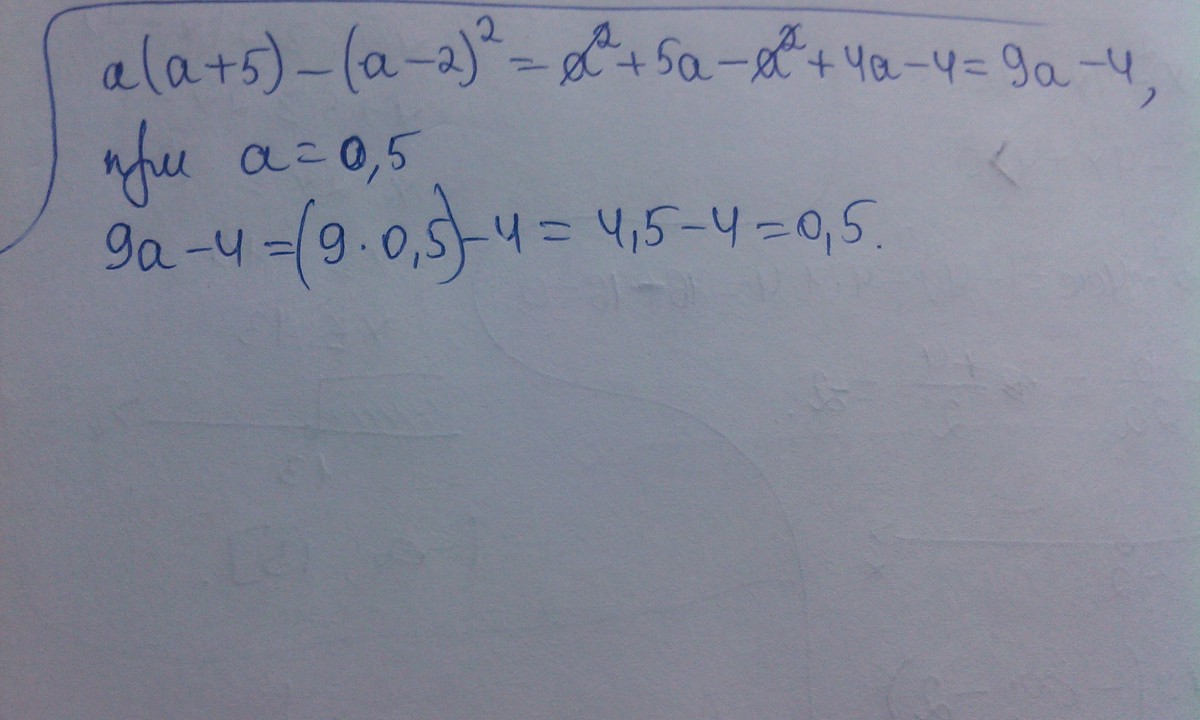 a(a+5)-(a-2)² = a²+5a-a²+4a-4=9a-4,
при a=0,5
9a-4=(9·0,5)-4=4,5-4=0,5.